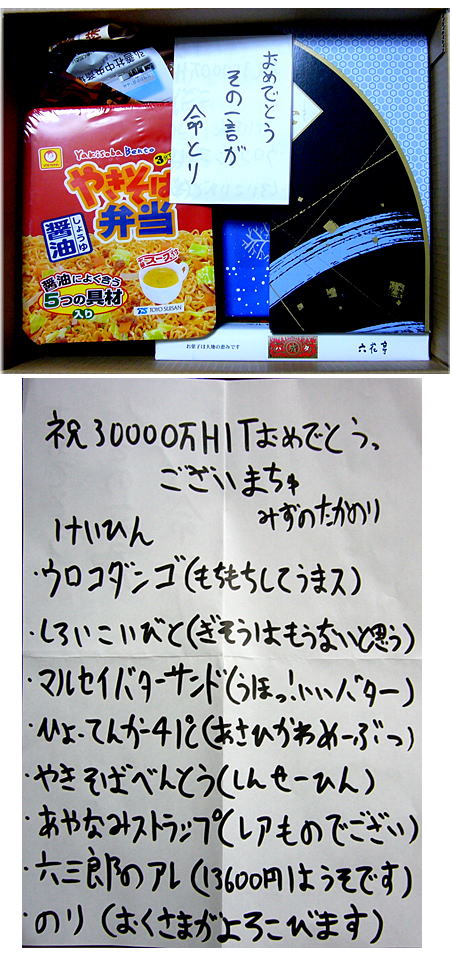 おめでとう
その一言が
命とり
Yakisoba Bento
やきそば
弁当
醤油
しょうゆ
醤油によく合う
5つの具材
入り
TOYO SUISAN
お菓子は大地の恵みです
六花亭
祝30000万HITおめでとうっ
ございまちゅ
みずのたかのり
けいひん
・ウロコダンゴ(もちもちしてうまス)
・しろいこいびと(ぎそうはもうないと思う)
・マルセイバターサンド(うほっ!いいバター)
・ひょーてんかー41℃(あさひかわめーぶつ)
・やきそばべんとう(しんせーひん)
・あやなみストラップ(レアものでござい)
・六三郎のアレ(13600円はうそです)
・のり(おくさまがよろこびます)